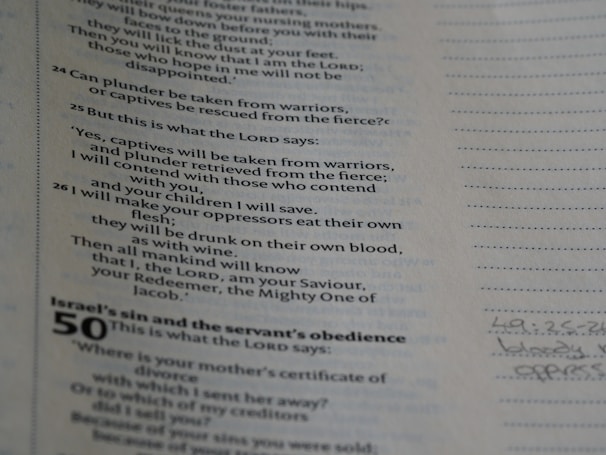 your foster fathers,
their queens your nursing mothers.
They will bow down before you with their
faces to the ground;
they will lick the dust at your feet.
Then you will know that I am the LORD;
those who hope in me will not be
disappointed.’
24 Can plunder be taken from warriors,
or captives be rescued from the fierce?c
25 But this is what the LORD says:
‘Yes, captives will be taken from warriors,
and plunder retrieved from the fierce;
I will contend with those who contend
with you,
and your children I will save.
26 I will make your oppressors eat their own
flesh;
they will be drunk on their own blood,
as with wine.
Then all mankind will know
that I, the LORD, am your Saviour,
your Redeemer, the Mighty One of
Jacob.’
Israel’s sin and the servant’s obedience
50 This is what the LORD says:
‘Where is your mother’s certificate of
divorce
with which I sent her away?
Or to which of my creditors
did I sell you?
Because of your sins you were sold;
because of your
49:25-26
bloody
oppress